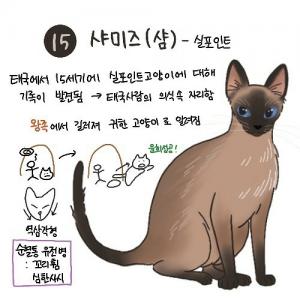 15 샤미즈(샴) - 실포인트
태국에서 15세기에 실포인트고양이에 대해
기록이 발견됨 → 태국사람의 의식속 자리함
왕족에서 길러져 귀한 고양이로 알려짐
윤회성공!
역삼각형
순혈통 유전병
: 꼬리휨
심한사시